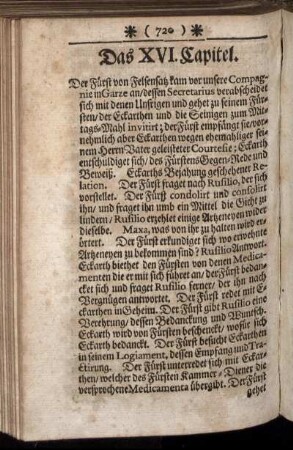 * ( 720 ) *
Das XVI. Capitel.
Der Fürst von Felsensatz kam vor unsere Compag-
nie in Garze an/dessen Secretarius verabscheidet
sich mit denen Unsrigen und gehet zu seinem Für-
sten/ der Eckarthen und die Seinigen zum Mit-
tags-Mahl invitirt; der Fürst empfängt sie/ vor-
nehmlich aber Eckarthen wegen ehemaliger seinem
Herrn Vater geleisteter Courtesie; Eckarth
entschuldiget sich/ des Fürstens Gegen-Rede und
Beweiß. Eckarths Bejahung geschehener Re-
lation. Der Fürst fraget nach Rufilio, der sich
vorstellet. Der Fürst condolirt und consolirt
ihn/ und fraget ihn umb ein Mittel die Gicht zu
lindern/ Rufilio erzehlet einige Artzeneyen wider
dieselbe. Maxa, was von ihr zu halten wird er-
örtert. Der Fürst erkundiget sich wo erwehnte
Artzeneyen zu bekommen sind? Rufilio Antwort.
Eckarth biethet dem Fürsten von denen Medica-
menten die er mit sich führet an/ der Fürst bedan-
cket sich und fraget Rufilio ferner/ der ihn nach
Vergnügen antwortet. Der Fürst redet mit E-
ckarthen in Geheim. Der Fürst gibt Rufilio eine
Verehrung/ dessen Bedanckung und Wuntsch.
Eckarth wird von Fürsten beschenckt/ wofür sich
Eckarth bedanckt. Der Fürst besucht Eckarthen
in seinem Logiament, dessen Empfang und Tra-
ctirung. Der Fürst unterredet sich mit Eckar-
then/ welcher des Fürsten Kammer-Diener die
versprochene Medicamenta übergibt. Der Fürst
gehet